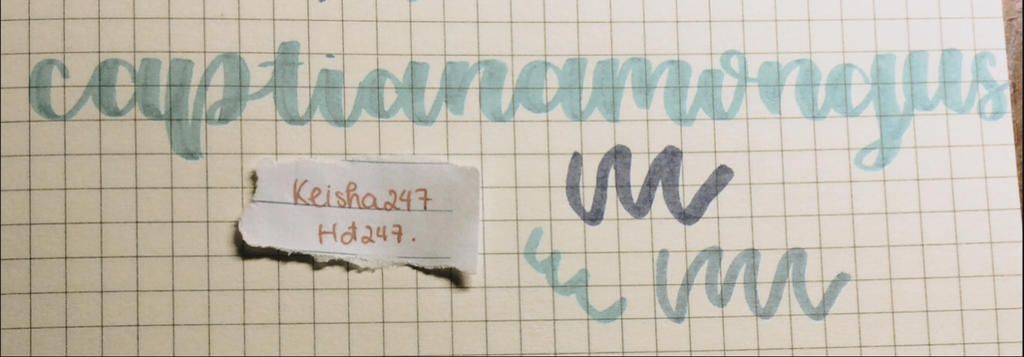 captianamongus
Keisha247
Hd247.